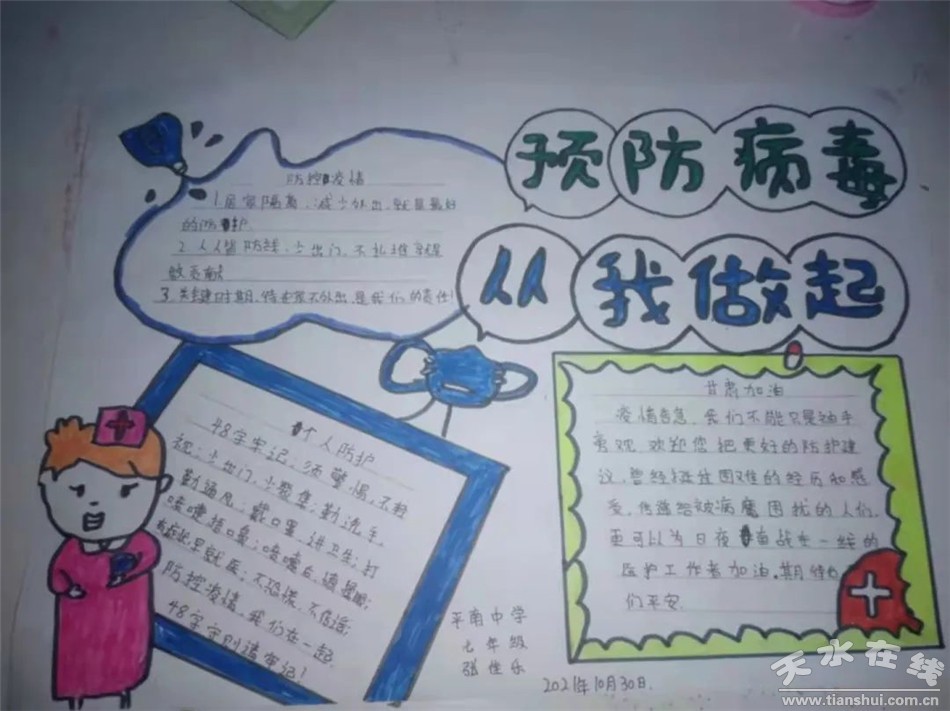 预防病毒
从我做起
防控疫情
1.居家隔离,减少外出,就是最好
的防护.
2.人人皆防线,少出门,不扎堆就是
做贡献
3.关键时期,待在家不外出,是我们的责任!
个人防护
48字牢记:须警惕,不轻
视;少出门,少聚集;勤洗手,
勤通风;戴口罩,讲卫生;打
喷嚏,捂口鼻;喷嚏后,慎揉眼;
有症状,早就医;不恐慌,不信谣;
防控疫情,我们在一起,
48字守则请牢记!
甘肃加油
疫情告急,我们不能只是袖手
旁观,欢迎您把更好的防护建
议,曾经挺住困难的经历和感
受,传递给被病魔困扰的人们,
更可以为日夜奋战在一线的
医护工作者加油,期待
们平安.
平南中学
七年级
张佳乐
2021年10月30日.
天水在线
www.tianshui.com.cn